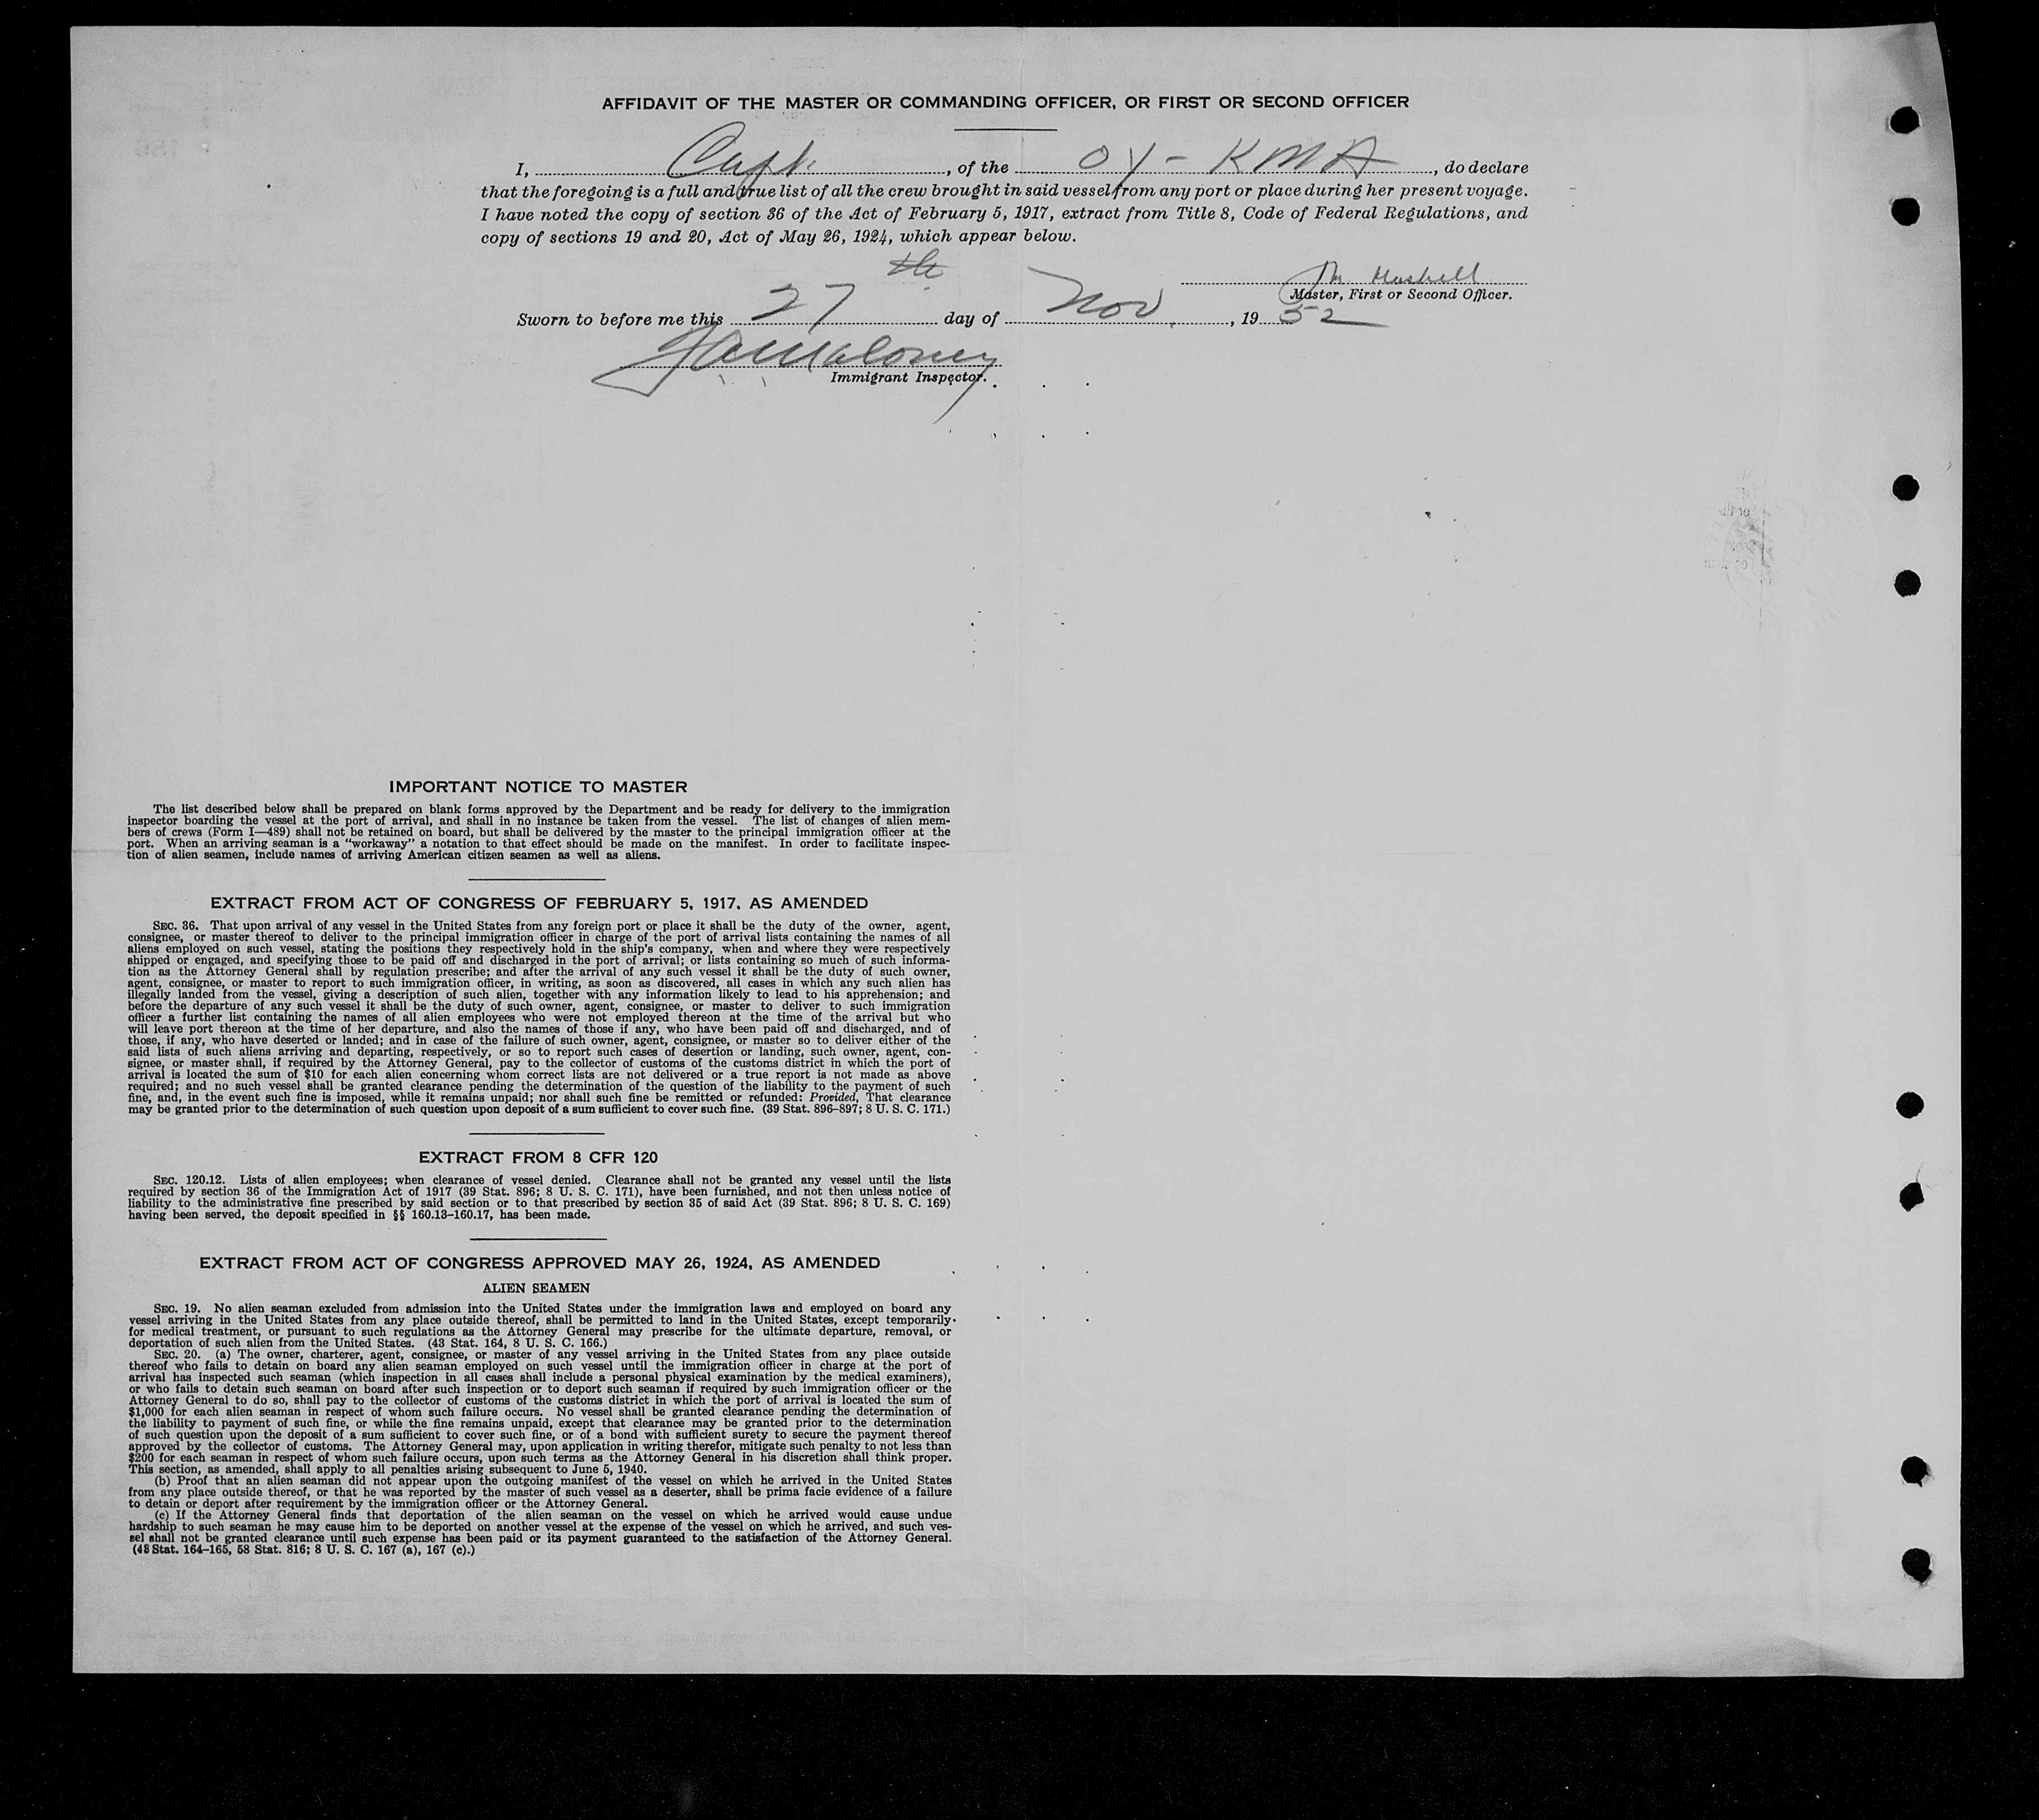 AFFIDAVIT OF THE MASTER OR COMMANDING OFFICER, OR FIRST OR SECOND OFFICER
I, Capt. , of the OY-KMA , do declare
that the foregoing is a full and true list of all the crew brought in said vessel from any port or place during her present voyage.
I have noted the copy of section 36 of the Act of February 5, 1917, extract from Title 8, Code of Federal Regulations, and
copy of sections 19 and 20, Act of May 26, 1924, which appear below.
Master, First or Second Officer.
Sworn to before me this 27th day of Nov , 19 52
Maloney
Immigrant Inspector.
IMPORTANT NOTICE TO MASTER
The list described below shall be prepared on blank forms approved by the Department and be ready for delivery to the immigration
inspector boarding the vessel at the port of arrival, and shall in no instance be taken from the vessel. The list of changes of alien mem-
bers of crews (Form I—489) shall not be retained on board, but shall be delivered by the master to the principal immigration officer at the
port. When an arriving seaman is a "workaway" a notation to that effect should be made on the manifest. In order to facilitate inspec-
tion of alien seamen, include names of arriving American citizen seamen as well as aliens.
EXTRACT FROM ACT OF CONGRESS OF FEBRUARY 5, 1917, AS AMENDED
SEC. 36. That upon arrival of any vessel in the United States from any foreign port or place it shall be the duty of the owner, agent,
consignee, or master thereof to deliver to the principal immigration officer in charge of the port of arrival lists containing the names of all
aliens employed on such vessel, stating the positions they respectively hold in the ship's company, when and where they were respectively
shipped or engaged, and specifying those to be paid off and discharged in the port of arrival; or lists containing so much of such informa-
tion as the Attorney General shall by regulation prescribe; and after the arrival of any such vessel it shall be the duty of such owner,
agent, consignee, or master to report to such immigration officer, in writing, as soon as discovered, all cases in which any such alien has
illegally landed from the vessel, giving a description of such alien, together with any information likely to lead to his apprehension; and
before the departure of any such vessel it shall be the duty of such owner, agent, consignee, or master to deliver to such immigration
officer a further list containing the names of all alien employees who were not employed thereon at the time of the arrival but who
will leave port thereon at the time of her departure, and also the names of those if any, who have been paid off and discharged, and of
those, if any, who have deserted or landed; and in case of the failure of such owner, agent, consignee, or master so to deliver either of the
said lists of such aliens arriving and departing, respectively, or so to report such cases of desertion or landing, such owner, agent, con-
signee, or master shall, if required by the Attorney General, pay to the collector of customs of the customs district in which the port of
arrival is located the sum of $10 for each alien concerning whom correct lists are not delivered or a true report is not made as above
required; and no such vessel shall be granted clearance pending the determination of the question of the liability to the payment of such
fine, and, in the event such fine is imposed, while it remains unpaid; nor shall such fine be remitted or refunded: Provided, That clearance
may be granted prior to the determination of such question upon deposit of a sum sufficient to cover such fine. (39 Stat. 896–897; 8 U. S. C. 171.)
EXTRACT FROM 8 CFR 120
SEC. 120.12. Lists of alien employees; when clearance of vessel denied. Clearance shall not be granted any vessel until the lists
required by section 36 of the Immigration Act of 1917 (39 Stat. 896; 8 U. S. C. 171), have been furnished, and not then unless notice of
liability to the administrative fine prescribed by said section or to that prescribed by section 35 of said Act (39 Stat. 896; 8 U. S. C. 169)
having been served, the deposit specified in §§ 160.13–160.17, has been made.
EXTRACT FROM ACT OF CONGRESS APPROVED MAY 26, 1924, AS AMENDED
ALIEN SEAMEN
SEC. 19. No alien seaman excluded from admission into the United States under the immigration laws and employed on board any
vessel arriving in the United States from any place outside thereof, shall be permitted to land in the United States, except temporarily
for medical treatment, or pursuant to such regulations as the Attorney General may prescribe for the ultimate departure, removal, or
deportation of such alien from the United States. (43 Stat. 164, 8 U. S. C. 166.)
SEC. 20. (a) The owner, charterer, agent, consignee, or master of any vessel arriving in the United States from any place outside
thereof who fails to detain on board any alien seaman employed on such vessel until the immigration officer in charge at the port of
arrival has inspected such seaman (which inspection in all cases shall include a personal physical examination by the medical examiners),
or who fails to detain such seaman on board after such inspection or to deport such seaman if required by such immigration officer or the
Attorney General to do so, shall pay to the collector of customs of the customs district in which the port of arrival is located the sum of
$1,000 for each alien seaman in respect of whom such failure occurs. No vessel shall be granted clearance pending the determination of
the liability to payment of such fine, or while the fine remains unpaid, except that clearance may be granted prior to the determination
of such question upon the deposit of a sum sufficient to cover such fine, or of a bond with sufficient surety to secure the payment thereof
approved by the collector of customs. The Attorney General may, upon application in writing therefor, mitigate such penalty to not less than
$200 for each seaman in respect of whom such failure occurs, upon such terms as the Attorney General in his discretion shall think proper.
This section, as amended, shall apply to all penalties arising subsequent to June 5, 1940.
(b) Proof that an alien seaman did not appear upon the outgoing manifest of the vessel on which he arrived in the United States
from any place outside thereof, or that he was reported by the master of such vessel as a deserter, shall be prima facie evidence of a failure
to detain or deport after requirement by the immigration officer or the Attorney General.
(c) If the Attorney General finds that deportation of the alien seaman on the vessel on which he arrived would cause undue
hardship to such seaman he may cause him to be deported on another vessel at the expense of the vessel on which he arrived, and such ves-
sel shall not be granted clearance until such expense has been paid or its payment guaranteed to the satisfaction of the Attorney General.
(43 Stat. 164–165, 58 Stat. 816; 8 U. S. C. 167 (a), 167 (c).)